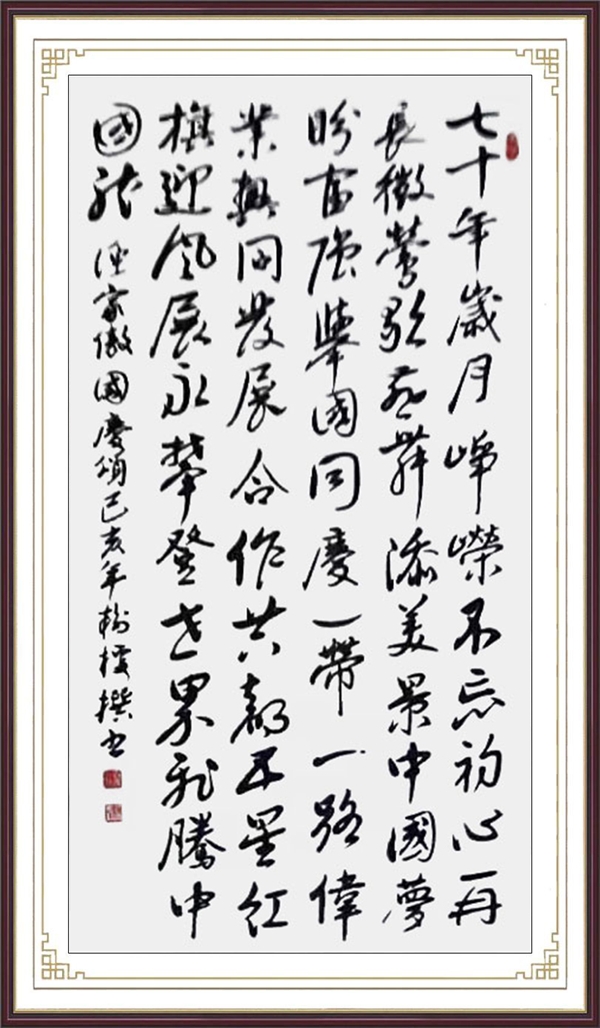 七十年歲月崢嶸不忘初心再
長徵鶯歌燕舞添美景中國夢
盼富強舉國同慶一帶一路偉
業興同發展合作共贏五星紅
旗迎風展永攀登世界飛騰中
國龍 漁家傲國慶頌己亥年撰書